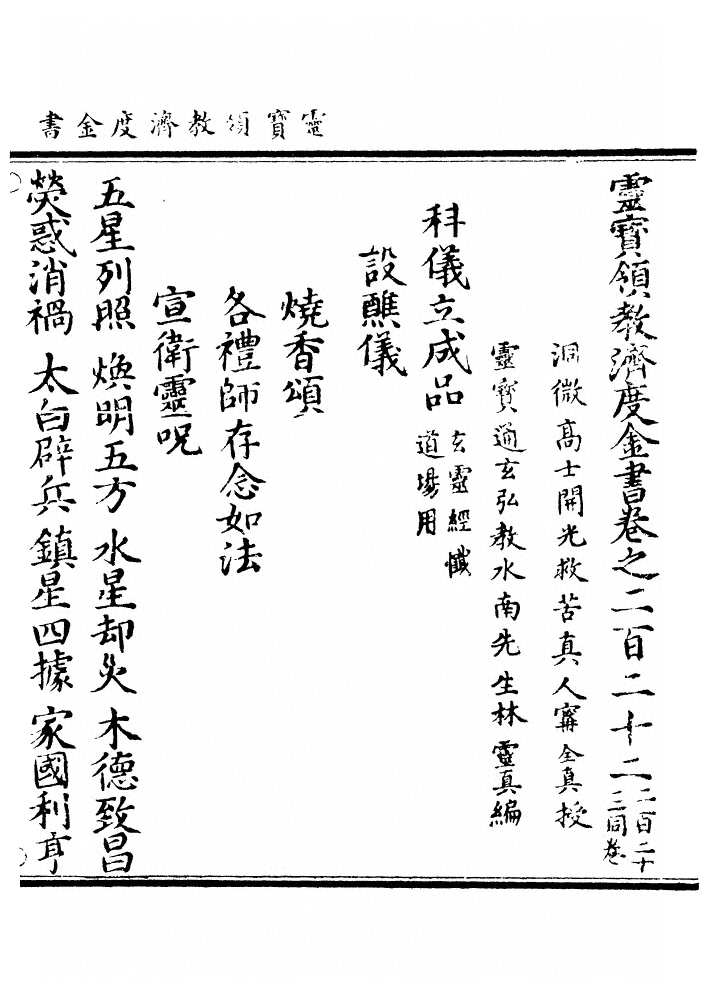 靈寶領教濟度金書
靈寶領教濟度金書卷之二百二十二二百二十三同卷
洞微高士開光救苦真人寗全真授
靈寶通玄弘教水南先生林靈真編
科儀立成品玄靈經懺道場用
設醮儀
燒香頌
各禮師存念如法
宣衛靈呪
五星列照 煥明五方 水星却災 木德致昌
熒惑消禍 太白辟兵 鎮星四據 家國利亨